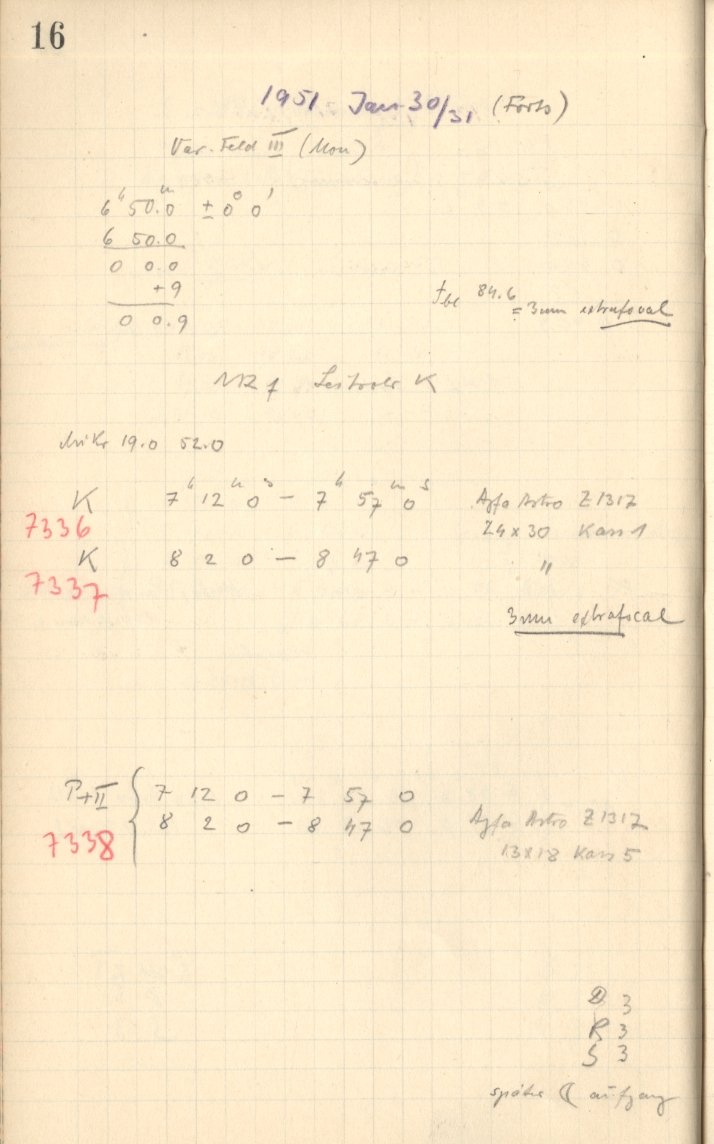 16
1951 Jan 30/31 (Forts)
Var. Feld III (Mon)
6ʰ 50.0ᵐ ± 0° 0'
6 50.0
0 0.0
+9
0 0.9
84.6 = 3mm extrafocal
K
Mikr 19.0 52.0
K 7ʰ 12ᵐ 0ˢ – 7ʰ 57ᵐ 0ˢ Agfa Astro Z1317
7336 24x30 Kass 1
K 8 2 0 – 8 47 0 "
7337
3mm extrafocal
P+II { 7 12 0 – 7 57 0
8 2 0 – 8 47 0 Agfa Astro Z1317
7338 13x18 Kass 5
D 3
R 3
S 3
später ☾ aufgang